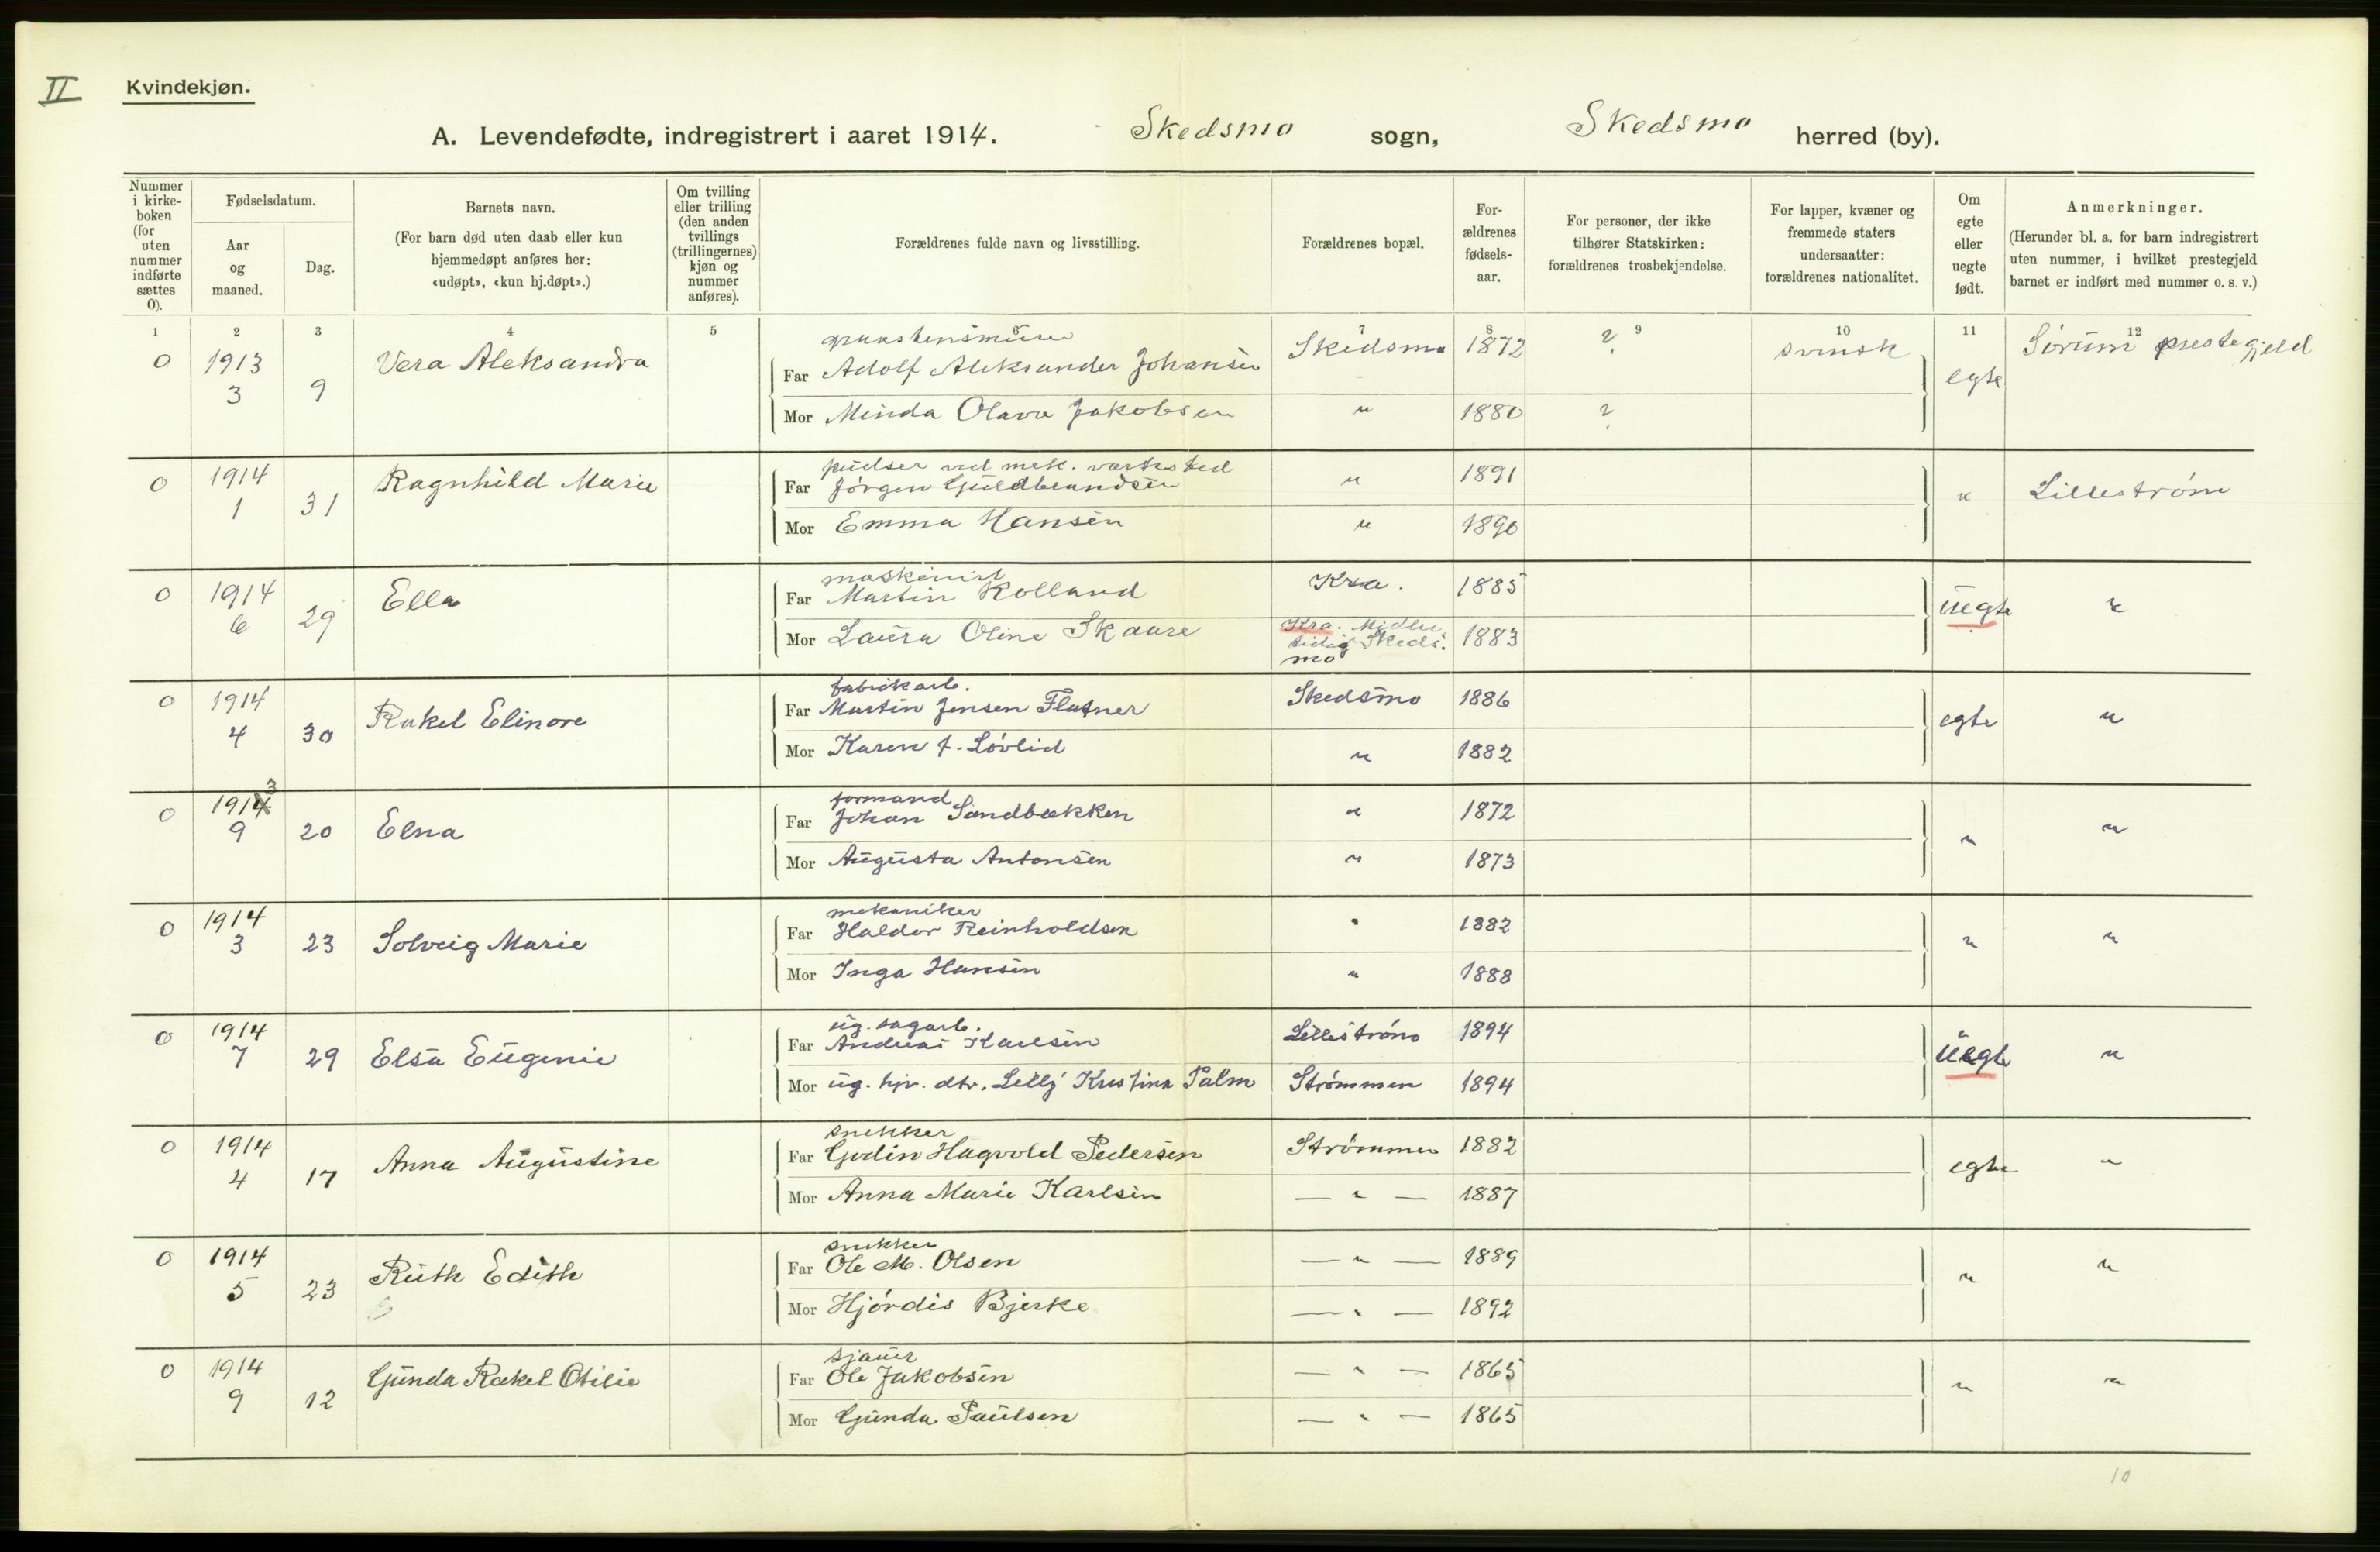 II
Kvindekjøn.
A. Levendefødte, indregistrert i aaret 1914. Skedsmo sogn, Skedsmo herred (by).
Nummer i kirkeboken (for uten nummer indførte sættes 0).
Fødselsdatum.
Aar og maaned.
Dag.
Barnets navn.
(For barn død uten daab eller kun hjemmedøpt anføres her: «udøpt», «kun hj.døpt».)
Om tvilling eller trilling (den anden tvillings (trillingernes) kjøn og nummer anføres).
Forældrenes fulde navn og livsstilling.
Forældrenes bopæl.
Forældrenes fødselsaar.
For personer, der ikke tilhører Statskirken: forældrenes trosbekjendelse.
For lapper, kvæner og fremmede staters undersaatter: forældrenes nationalitet.
Om egte eller uegte født.
Anmerkninger.
(Herunder bl. a. for barn indregistrert uten nummer, i hvilket prestegjeld barnet er indført med nummer o. s. v.)
1 2 3 4 5 6 7 8 9 10 11 12
0 1913 3 9 Vera Aleksandra
Far Adolf Aleksander Johansen Skedsmo 1872 ? svensk egte Sørum prestegjeld
Mor Minda Olava Jakobsen " 1880 ?
0 1914 1 31 Ragnhild Marie
pudser ved mek. verksted
Far Jørgen Guldbrandsen " 1891 " Lillestrøm
Mor Emma Hansen " 1890
0 1914 6 29 Ella
maskinist
Far Martin Rolland Kra. 1885 uegte "
Mor Laura Oline Skaare Kra. Midlertidig Skedsmo 1883
0 1914 4 30 Rakel Elinore
fabrikarb.
Far Martin Jensen Flatner Skedsmo 1886 egte "
Mor Karen J. Løvlid " 1882
0 1913 9 20 Elna
formand
Far Johan Sandbækken " 1872 " "
Mor Augusta Antonsen " 1873
0 1914 3 23 Solveig Marie
mekaniker
Far Haldor Reinholdsen " 1882 " "
Mor Inga Hansen " 1888
0 1914 7 29 Elsa Eugenie
ug. sagarb.
Far Andreas Karlsen Lillestrøm 1894 uegte "
Mor ug. hjv. dtr. Lilly Kristina Palm Strømmen 1894
0 1914 4 17 Anna Augustine
snekker
Far Godin Hagvold Pedersen Strømmen 1882 egte "
Mor Anna Marie Karlsen — " — 1887
0 1914 5 23 Ruth Edith
snekker
Far Ole M. Olsen — " — 1889 " "
Mor Hjørdis Bjerke — " — 1892
0 1914 9 12 Gunda Rakel Otilie
sjauer
Far Ole Jakobsen — " — 1865 " "
Mor Gunda Paulsen — " — 1865
10